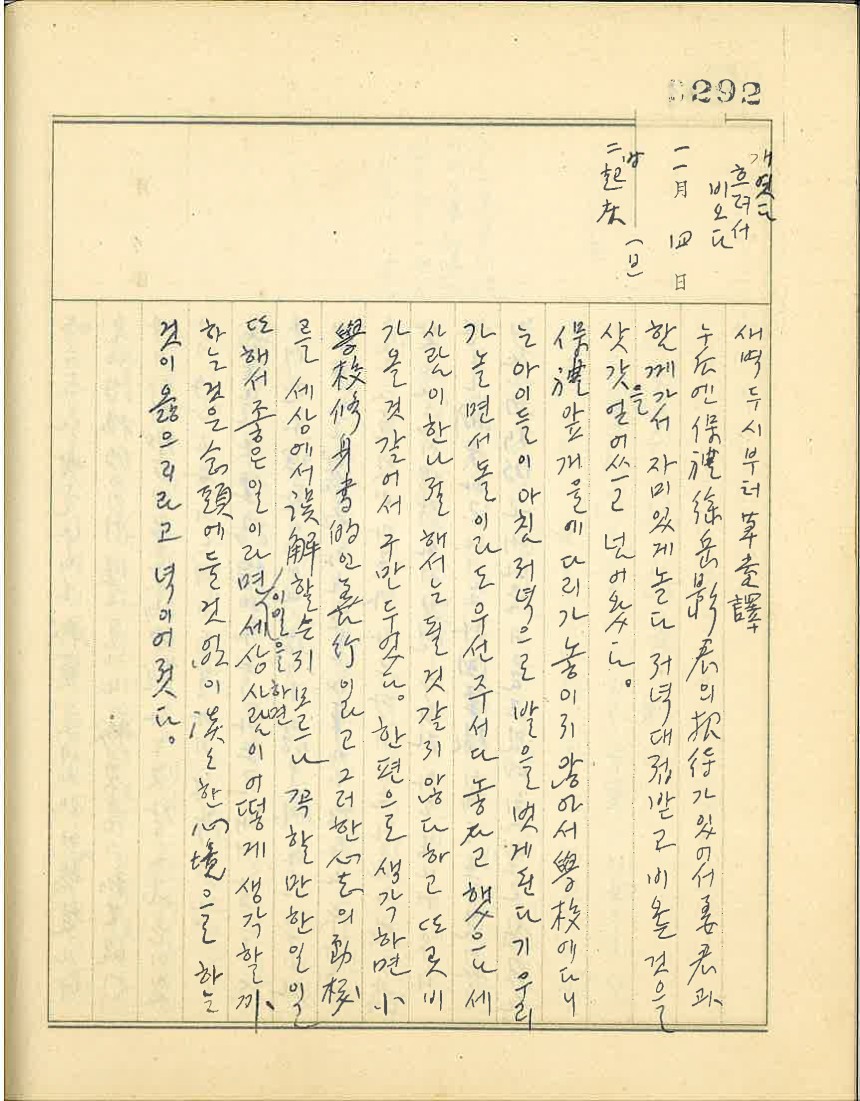 292
개엿다
흐려서
비오다
一一月 四日
(日)
二박
起床
새벽 두시부터 草壺譯
午后엔 保禮 徐岳影君의 招待가 있어서 姜君과
함께 가서 자미있게 놀다 저녁대접 받고 비올 것을
삿갓을 얻어쓰고 넘어왔다。
保禮앞 개울에 다리가 놓이지 않아서 學校에 다니
는 아이들이 아침 저녁으로 발을 벗게 된다기 우리
가 놀면서 돌이라도 우선 주서다 놓자고 했으나 세
사람이 한나절 해서는 될 것 같지 않다 하고 또 곳 비
가 올 것 같어서 구만 두었다。 한편으로 생각하면 小
學校 修身書的인 善行이라고 그러한 心志의 動機
를 세상에서 誤解할는지 모르나 꼭 할만한 일 일
또 해서 좋은 일이라면 이 일을 하면 세상사람이 어떻게 생각할까、
하는 것은 念頭에 둘 것 없이 淡淡한 心境으로 하는
것이 옳으리라고 녁이어젓다。